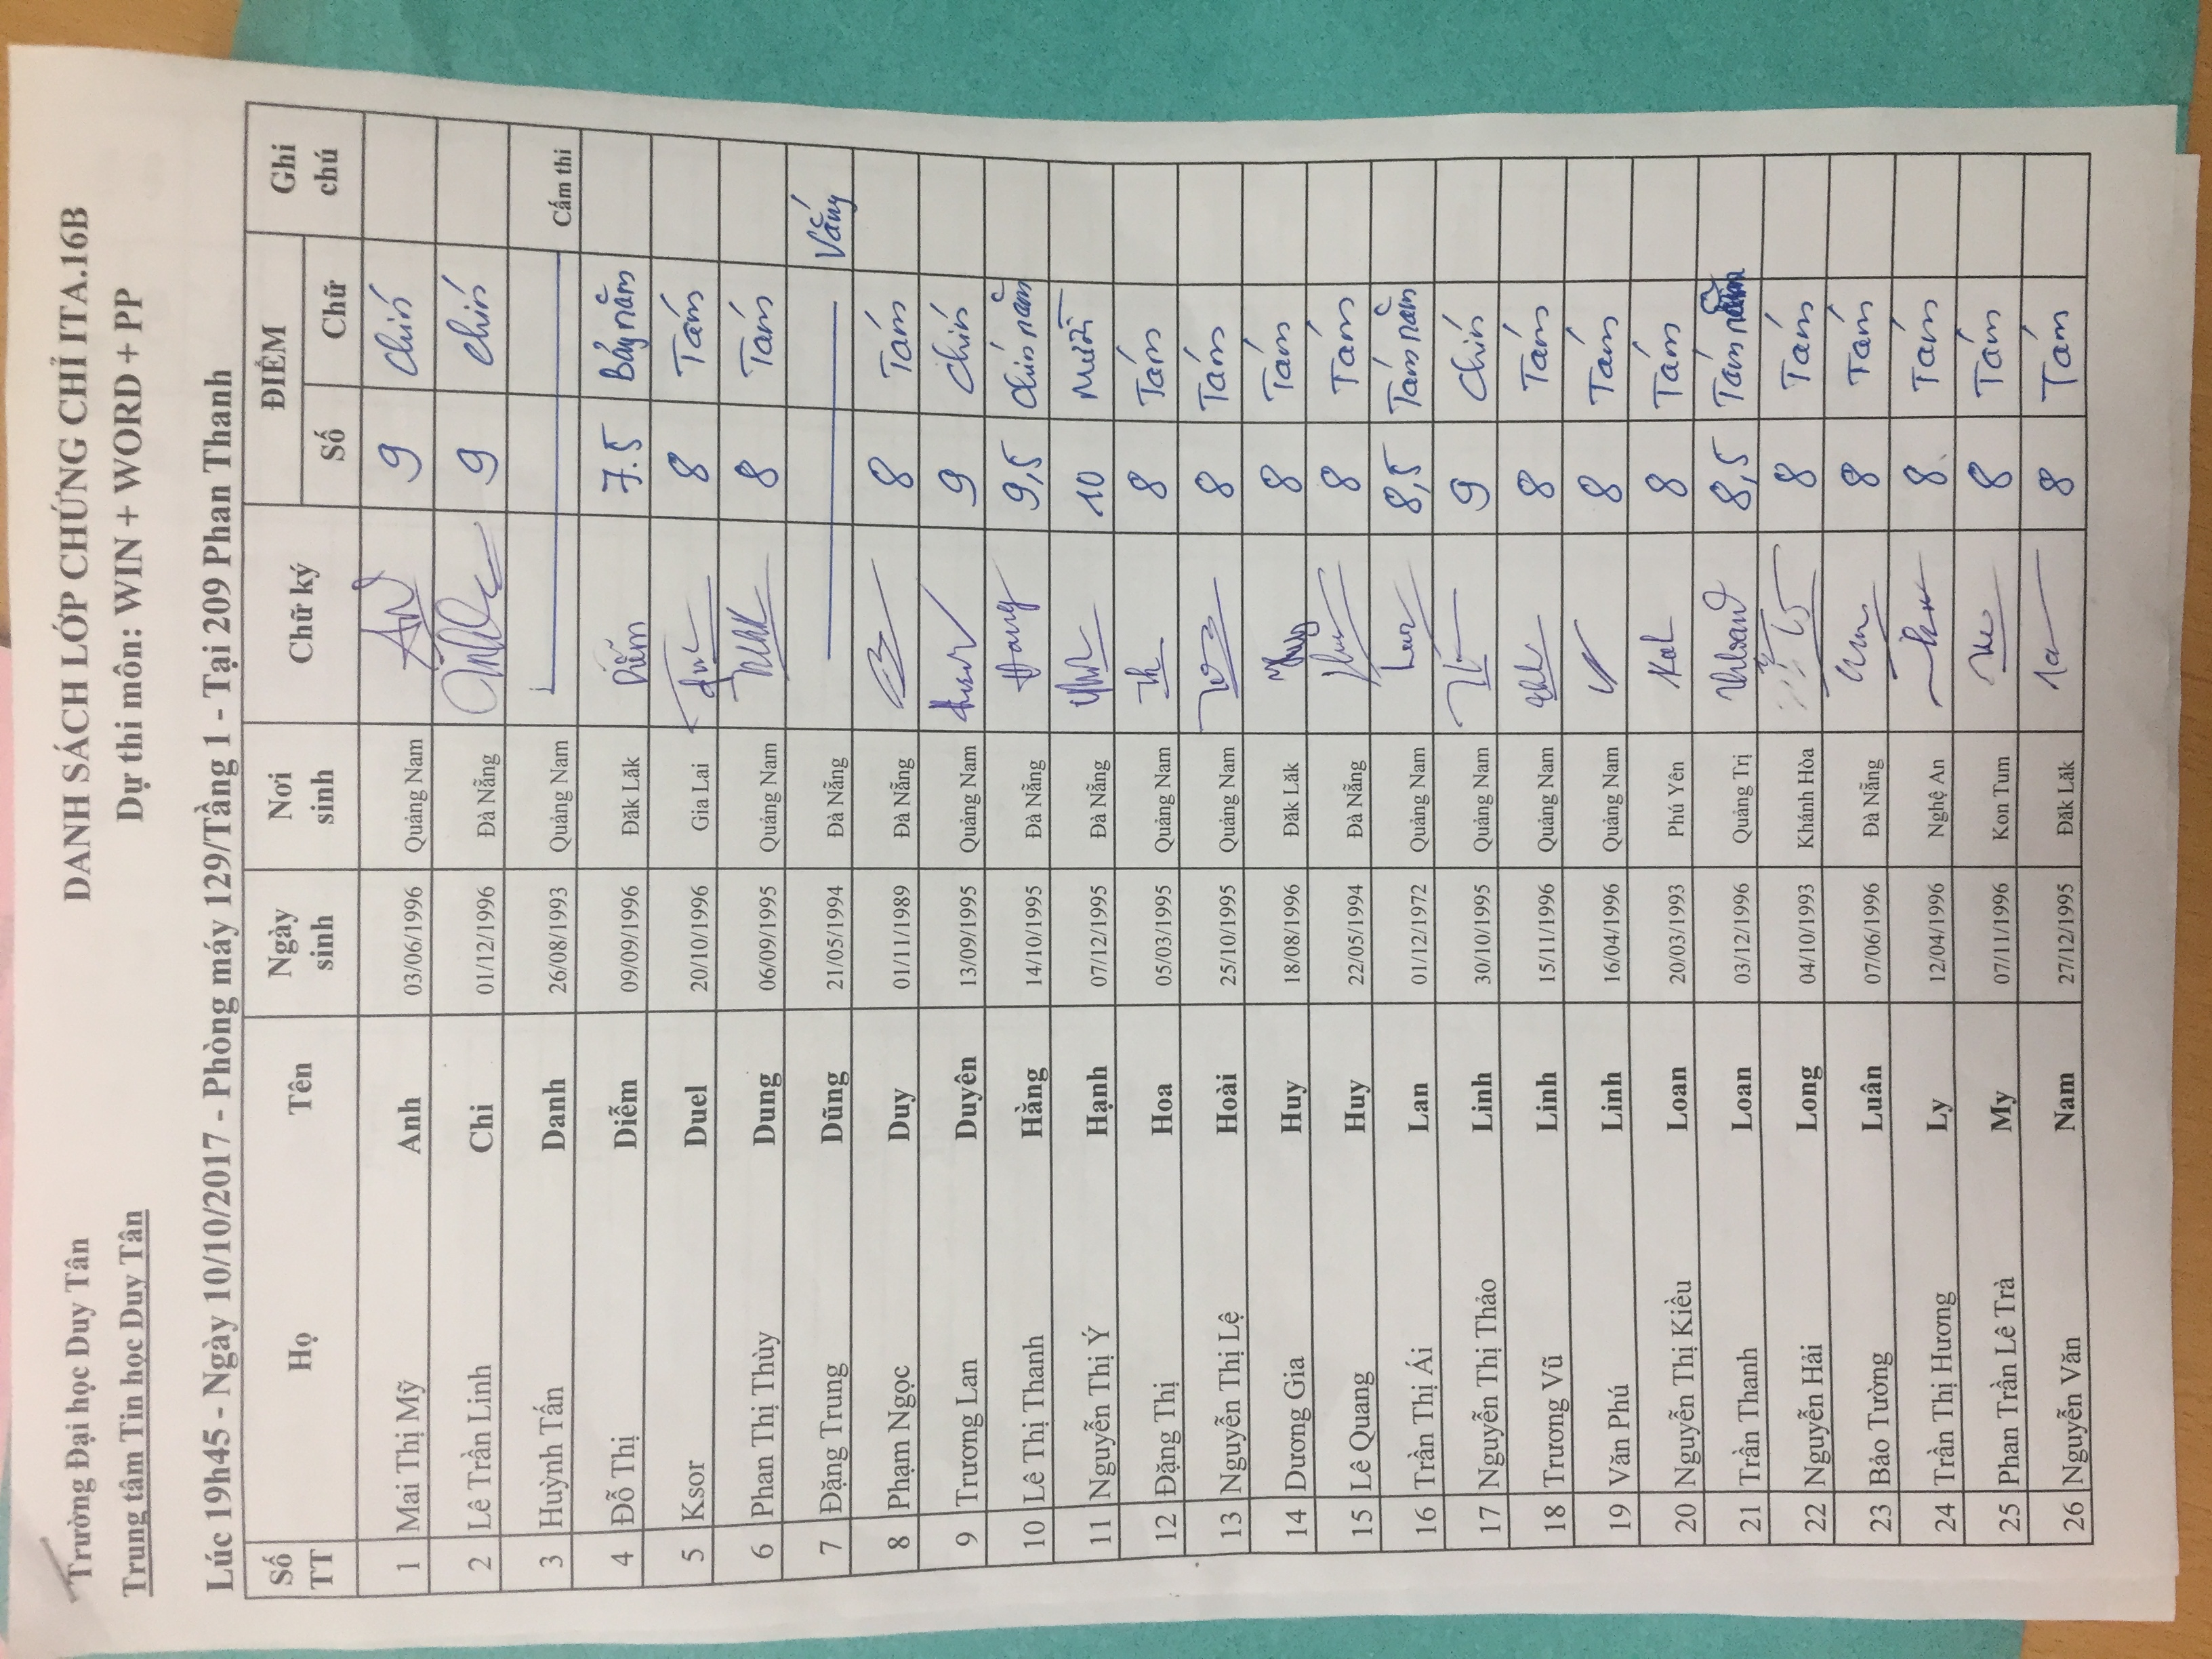 Trường Đại học Duy Tân
Trung tâm Tin học Duy Tân
DANH SÁCH LỚP CHỨNG CHỈ ITA.16B
Dự thi môn: WIN + WORD + PP
Lúc 19h45 - Ngày 10/10/2017 - Phòng máy 129/Tầng 1 - Tại 209 Phan Thanh
Số TT Họ Tên Ngày sinh Nơi sinh Chữ ký ĐIỂM Số Chữ Ghi chú
1 Mai Thị Mỹ Anh 03/06/1996 Quảng Nam 9 Chín
2 Lê Trần Linh Chi 01/12/1996 Đà Nẵng 9 Chín
3 Huỳnh Tấn Danh 26/08/1993 Quảng Nam Cấm thi
4 Đỗ Thị Diễm 09/09/1996 Đăk Lăk Diễm 7.5 Bảy năm
5 Ksor Duel 20/10/1996 Gia Lai 8 Tám
6 Phan Thị Thùy Dung 06/09/1995 Quảng Nam 8 Tám
7 Đặng Trung Dũng 21/05/1994 Đà Nẵng Vắng
8 Phạm Ngọc Duy 01/11/1989 Đà Nẵng 8 Tám
9 Trương Lan Duyên 13/09/1995 Quảng Nam 9 Chín
10 Lê Thị Thanh Hằng 14/10/1995 Đà Nẵng Hang 9,5 Chín năm
11 Nguyễn Thị Ý Hạnh 07/12/1995 Đà Nẵng 10 Mười
12 Đặng Thị Hoa 05/03/1995 Quảng Nam 8 Tám
13 Nguyễn Thị Lệ Hoài 25/10/1995 Quảng Nam 8 Tám
14 Dương Gia Huy 18/08/1996 Đăk Lăk 8 Tám
15 Lê Quang Huy 22/05/1994 Đà Nẵng 8 Tám
16 Trần Thị Ái Lan 01/12/1972 Quảng Nam 8,5 Tám năm
17 Nguyễn Thị Thảo Linh 30/10/1995 Quảng Nam 9 Chín
18 Trương Vũ Linh 15/11/1996 Quảng Nam 8 Tám
19 Văn Phú Linh 16/04/1996 Quảng Nam 8 Tám
20 Nguyễn Thị Kiều Loan 20/03/1993 Phú Yên 8 Tám
21 Trần Thanh Loan 03/12/1996 Quảng Trị 8,5 Tám năm
22 Nguyễn Hải Long 04/10/1993 Khánh Hòa 8 Tám
23 Bảo Tường Luân 07/06/1996 Đà Nẵng 8 Tám
24 Trần Thị Hương Ly 12/04/1996 Nghệ An 8 Tám
25 Phan Trần Lê Trà My 07/11/1996 Kon Tum 8 Tám
26 Nguyễn Văn Nam 27/12/1995 Đăk Lăk 8 Tám